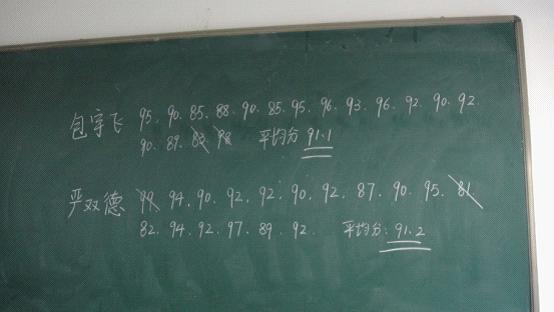 包宇飞 95. 90. 85. 88. 90. 85. 95. 96. 93. 96. 92. 90. 92.
90. 89. 83. 98 平均分 91.1
严双德 99. 94. 90. 92. 92. 90. 92. 87. 90. 95. 81
82. 94. 92. 97. 89. 92. 平均分: 91.2